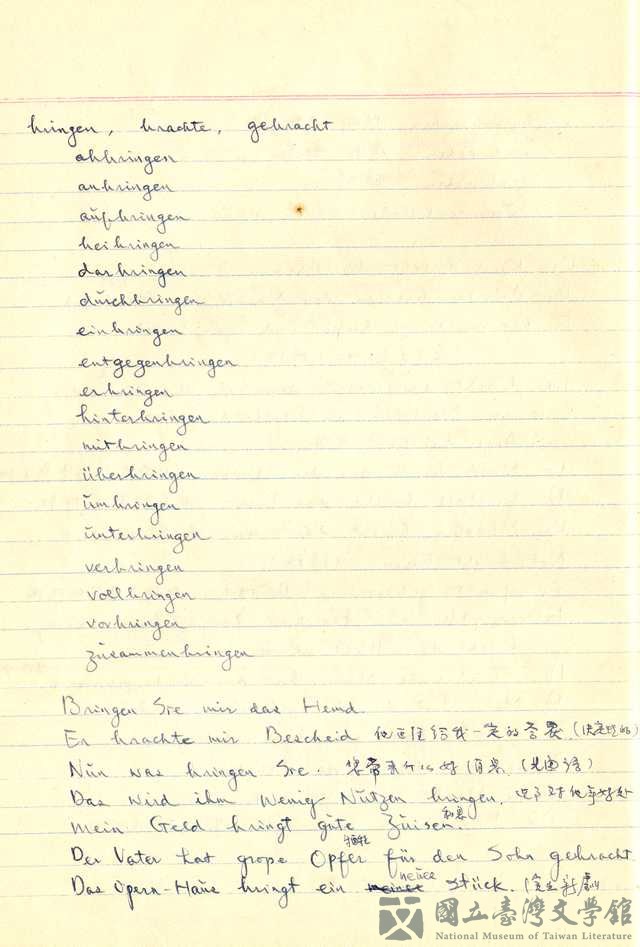 bringen, brachte, gebracht
abbringen
anbringen
aufbringen
beibringen
darbringen
durchbringen
einbringen
entgegenbringen
erbringen
hinterbringen
mitbringen
überbringen
umbringen
unterbringen
verbringen
vollbringen
vorbringen
zusammenbringen
Bringen Sie mir das Hemd.
Er brachte mir Bescheid 他回給我一定的答覆
Nun was bringen Sie. 您帶來什么好消息
Das wird ihm wenig Nutzen bringen.
利息
mein Geld bringt gute Zuisen.
犧牲
Der Vater hat große Opfer für den Sohn gebracht
neues
Das Opern-Haus bringt ein Stück.
國立臺灣文學館
National Museum of Taiwan Literature